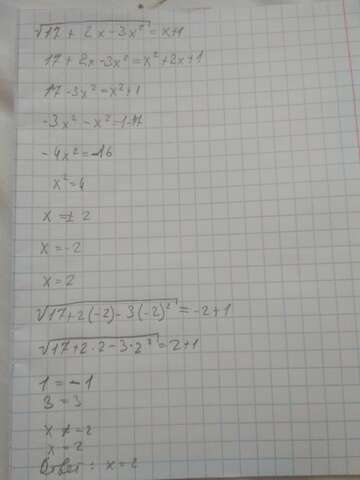 √17 + 2x - 3x² = x+1
17 + 2x - 3x² = x² + 2x + 1
17 - 3x² = x² + 1
-3x² - x² = 1-17
-4x² = -16
x² = 4
x = ± 2
x = -2
x = 2
√17+2(-2)-3(-2)² = -2+1
√17+2·2-3·2² = 2+1
1 = -1
3 = 3
x ≠ -2
x = 2
Ответ: x = 2